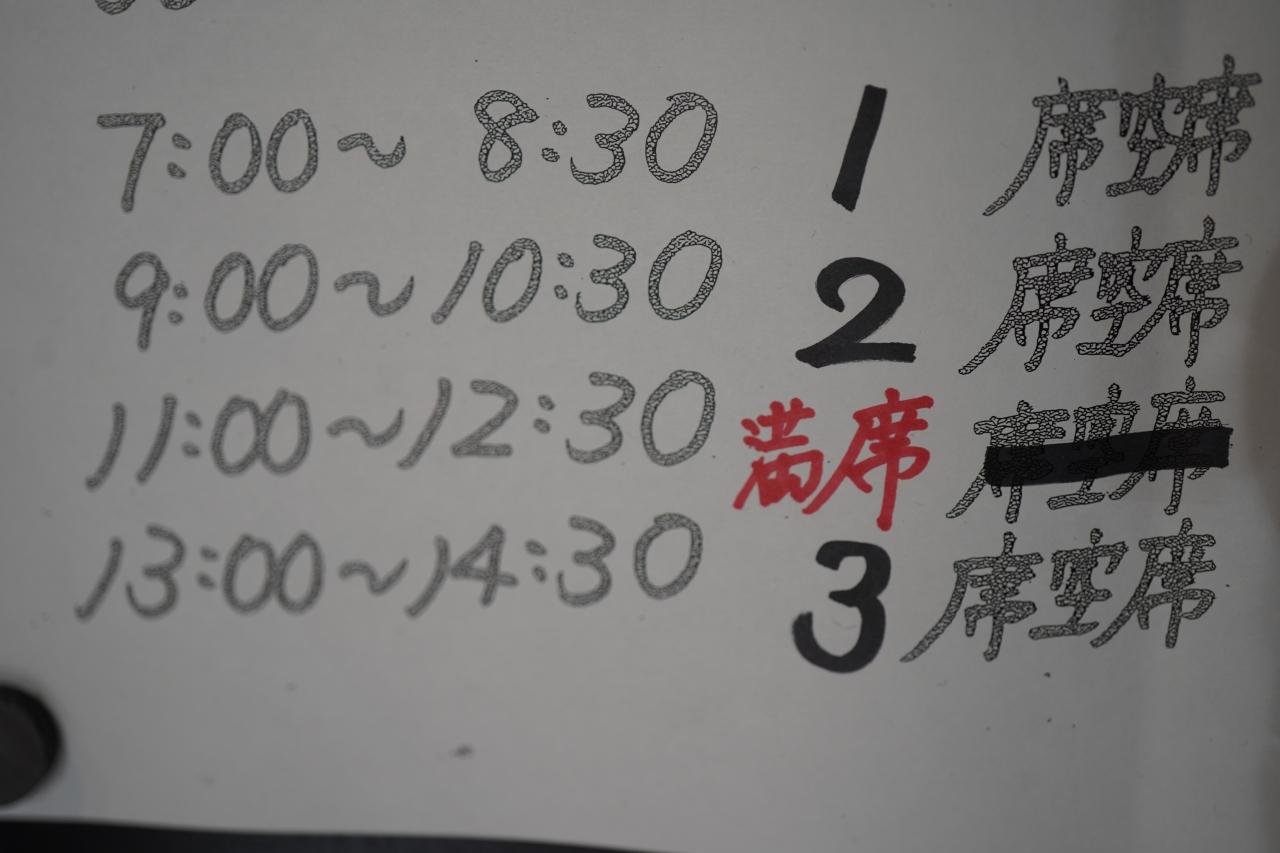 7:00～ 8:30 1 席空席
9:00～10:30 2 席空席
11:00～12:30 満席 席空席
13:00～14:30 3 席空席